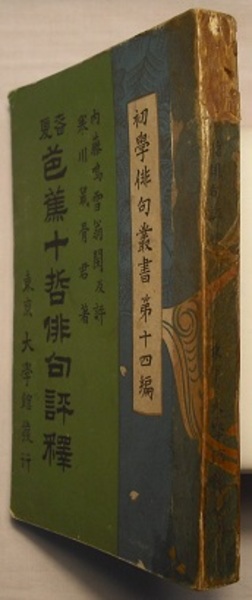 初學俳句叢書 第十四編
内藤鳴雪翁閲及評
寒川鼠骨君著
芭蕉十哲俳句評釋
東京 大學館發行